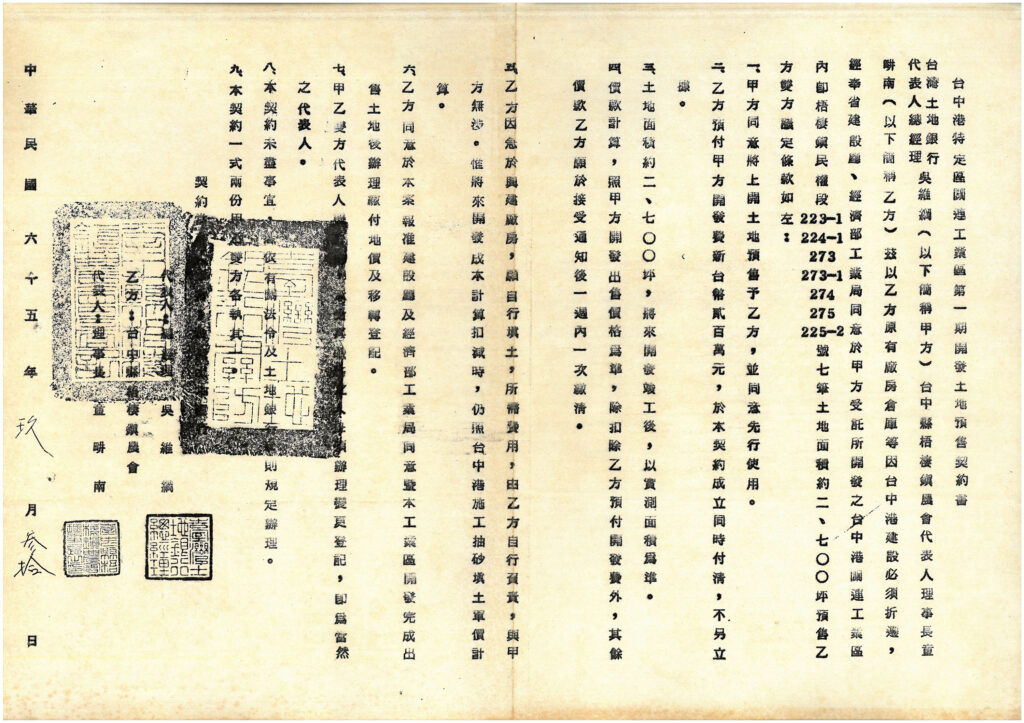 台中港特定區關連工業區第一期開發土地預售契約書
台灣土地銀行
代表人總經理
吳維綱(以下簡稱甲方)台中縣梧棲鎮農會代表人理事長童
畊南(以下簡稱乙方)茲以乙方原有廠房倉庫等因台中港建設必須折遷,
經奉省建設廳、經濟部工業局同意於甲方受託所開發之台中港關連工業區
內即梧棲鎮民權段
223-1
224-1
273
273-1
274
275
225-2
號七筆土地面積約二、七〇〇坪預售乙
方雙方議定條款如左:
一、甲方同意將上開土地預售予乙方,並同意先行使用。
二、乙方預付甲方開發費新台幣貳百萬元,於本契約成立同時付清,不另立
據。
三、土地面積約二、七〇〇坪,將來開發竣工後,以實測面積為準。
四、價款計算,照甲方開發出售價格為準,除扣除乙方預付開發費外,其餘
價款乙方願於接受通知後一週內一次繳清。
五、乙方因急於興建廠房,願自行填土,所需費用,由乙方自行負責,與甲
方無涉。惟將來開發成本計算扣減時,仍照台中港施工抽砂填土單價計
算。
六、乙方同意於本案報准建設廳及經濟部工業局同意暨本工業區開發完成出
售土地後辦理繳付地價及移轉登記。
七、甲乙雙方代表人 辦理變更登記,即為當然
之代表人。
八、本契約未盡事宜, 依有關法令及土地 則規定辦理。
九、本契約一式兩份甲乙雙方各執其一。
契約
代表人: 吳維綱
乙方:台中縣梧棲鎮農會
代表人:理事長童畊南
中華民國六十五年玖月叁拾日
臺灣土地銀行總經理